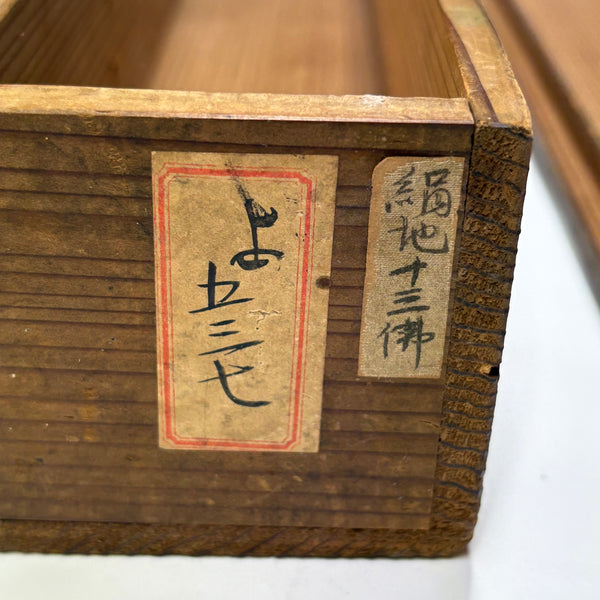 絹地十三佛
よ
五三七